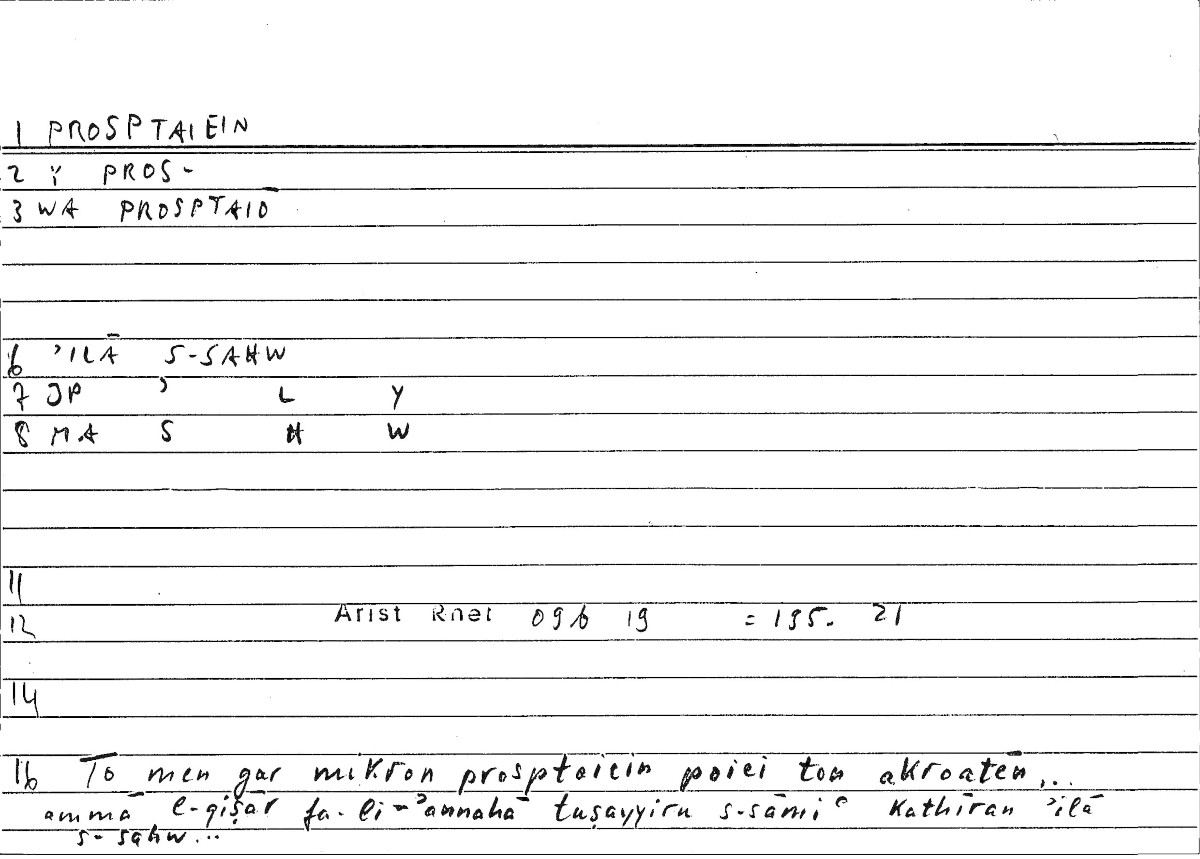 1 PROSPTAIEIN
2 Y PROS-
3 WA PROSPTAIŌ
6 ʾILĀ S-SAHW
7 JP ʾ L Y
8 MA S H W
11
12 Arist Rhet 09b 19 = 195. 21
14
16 To men gar mikron prosptaiein poiei ton akroatēn...
ammā l-qiṣār fa-li-ʾannahā tuṣayyiru s-sāmiʿ kathīran ʾilā
s-sahw...